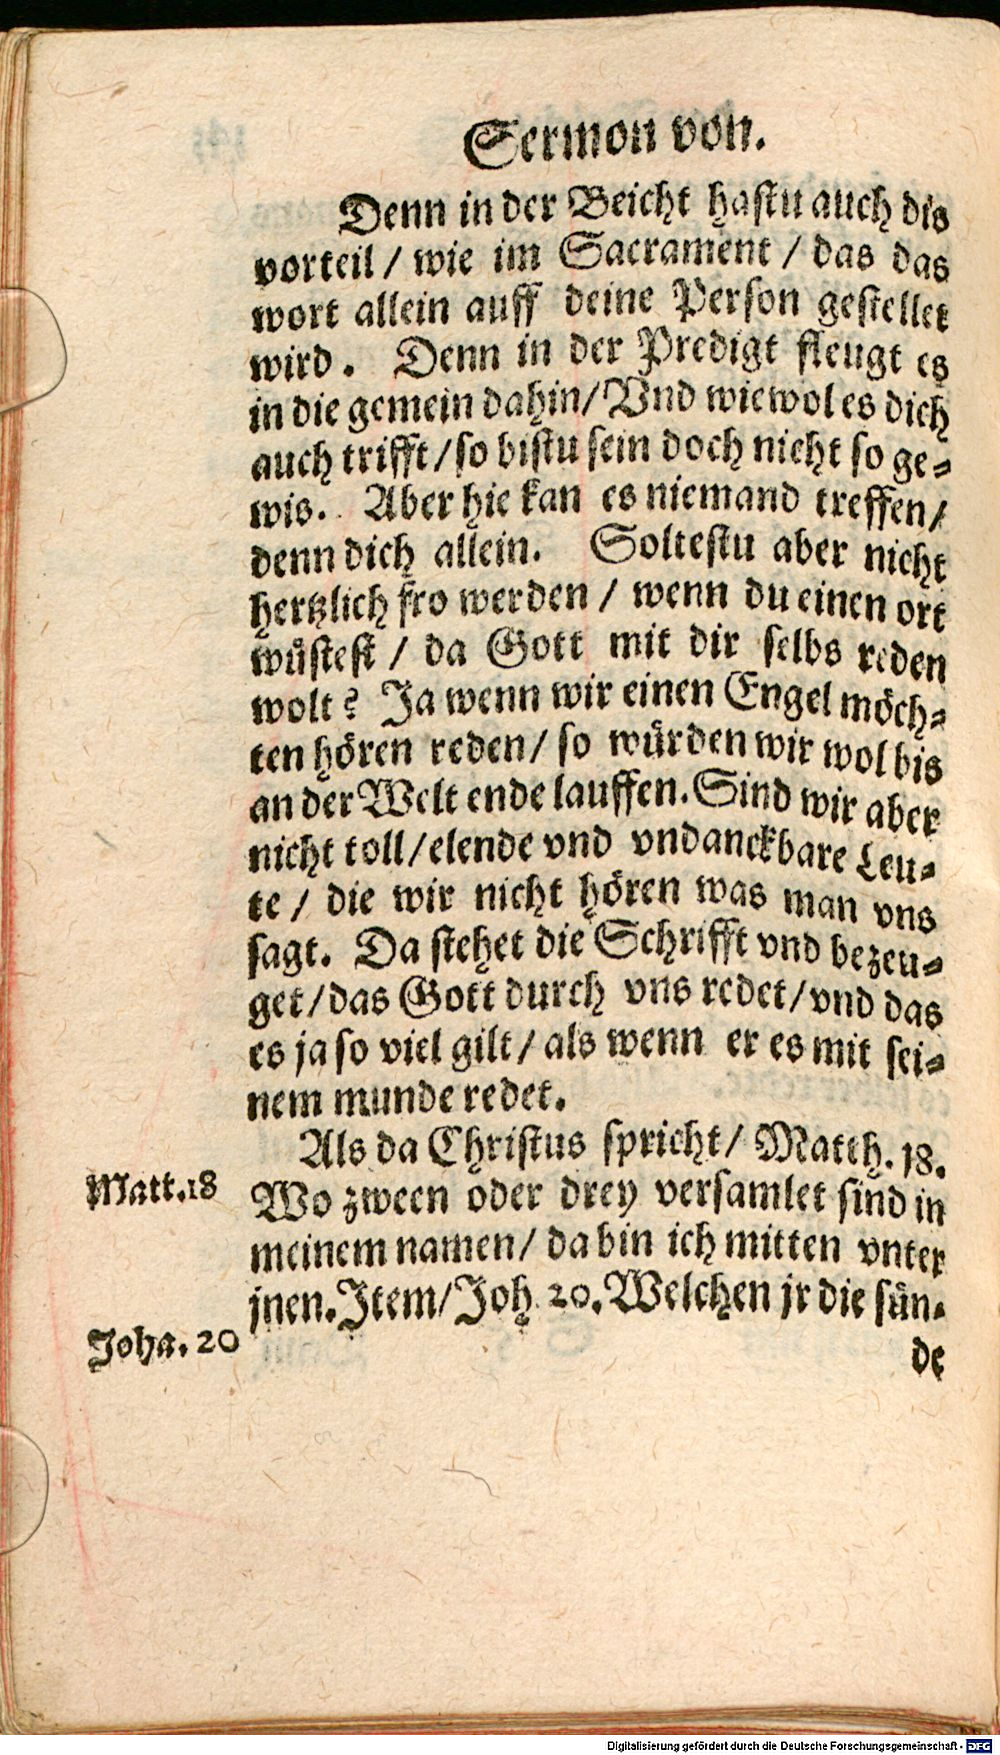 Sermon von.
Denn in der Beicht hastu auch dis
vorteil / wie im Sacrament / das das
wort allein auff deine Person gestellet
wird. Denn in der Predigt fleugt es
in die gemein dahin/ Vnd wiewol es dich
auch trifft/ so bistu sein doch nicht so ge-
wis. Aber hie kan es niemand treffen/
denn dich allein. Soltestu aber nicht
hertzlich fro werden / wenn du einen ort
wüstest / da Gott mit dir selbs reden
wolt? Ja wenn wir einen Engel möch-
ten hören reden/ so würden wir wol bis
an der Welt ende lauffen. Sind wir aber
nicht toll/ elende vnd vndanckbare Leu-
te / die wir nicht hören was man vns
sagt. Da stehet die Schrifft vnd bezeu-
get/ das Gott durch vns redet/ vnd das
es ja so viel gilt/ als wenn er es mit sei-
nem munde redet.
Als da Christus spricht/ Matth. 18.
Matt.18
Wo zween oder drey versamlet sind in
meinem namen/ da bin ich mitten vnter
jnen. Item/ Joh 20. Welchen jr die sün-
Joha. 20
de
Digitalisierung gefördert durch die Deutsche Forschungsgemeinschaft - DFG